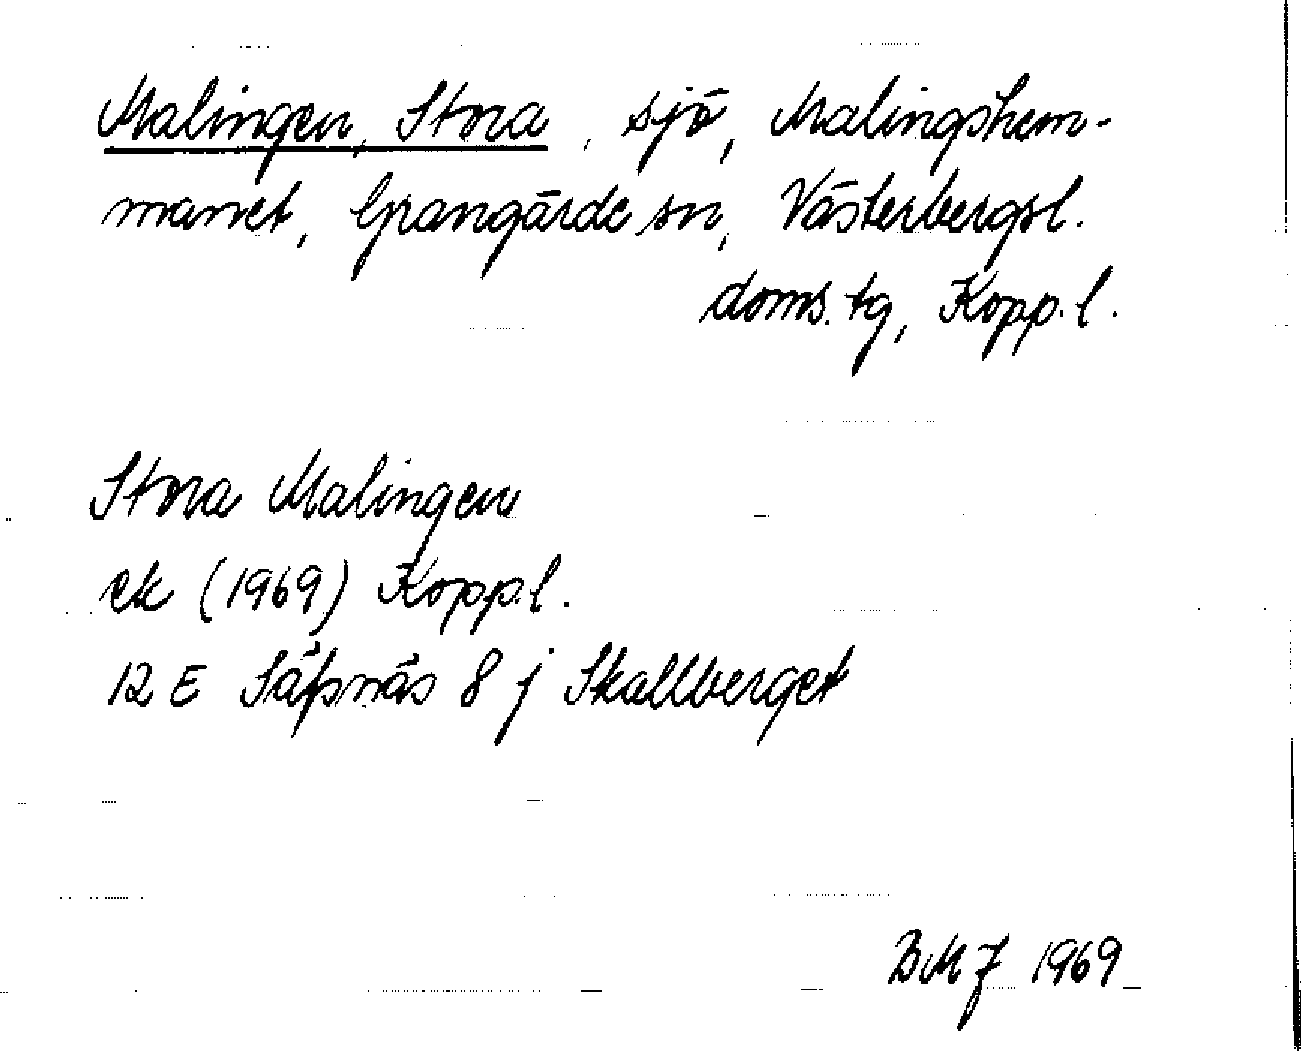 Malingen, Stora, sjö, Malingshem-
manet, Grangärde sn, Västerbergsl.
doms. tg, Kopp. l.
Stora Malingen
ek (1969) Kopp. l.
12 E Säfsnäs 8 j Skallberget
BMJ 1969